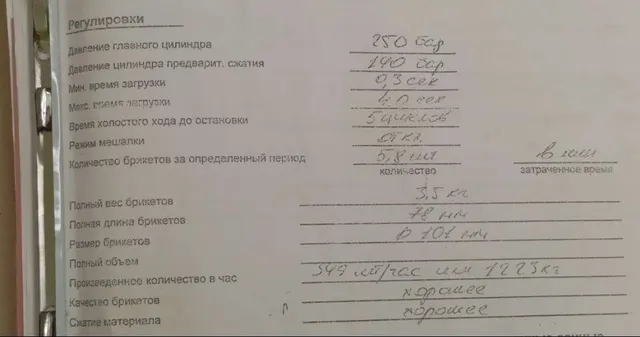 Регулировки
Давление главного цилиндра 250 бар
Давление цилиндра предварит. сжатия 140 бар
Мин. время загрузки 0,3 сек
Макс. время загрузки 4,0 сек
Время холостого хода до остановки 5 циклов
Режим мешалки откл.
Количество брикетов за определенный период 5,8 шт в мин
количество затраченное время
Полный вес брикетов 3,5 кг
Полная длина брикетов 78 мм
Размер брикетов D 101 мм
Полный объем
Произведенное количество в час 349 шт/час или 1223 кг
Качество брикетов хорошее
Сжатие материала хорошее